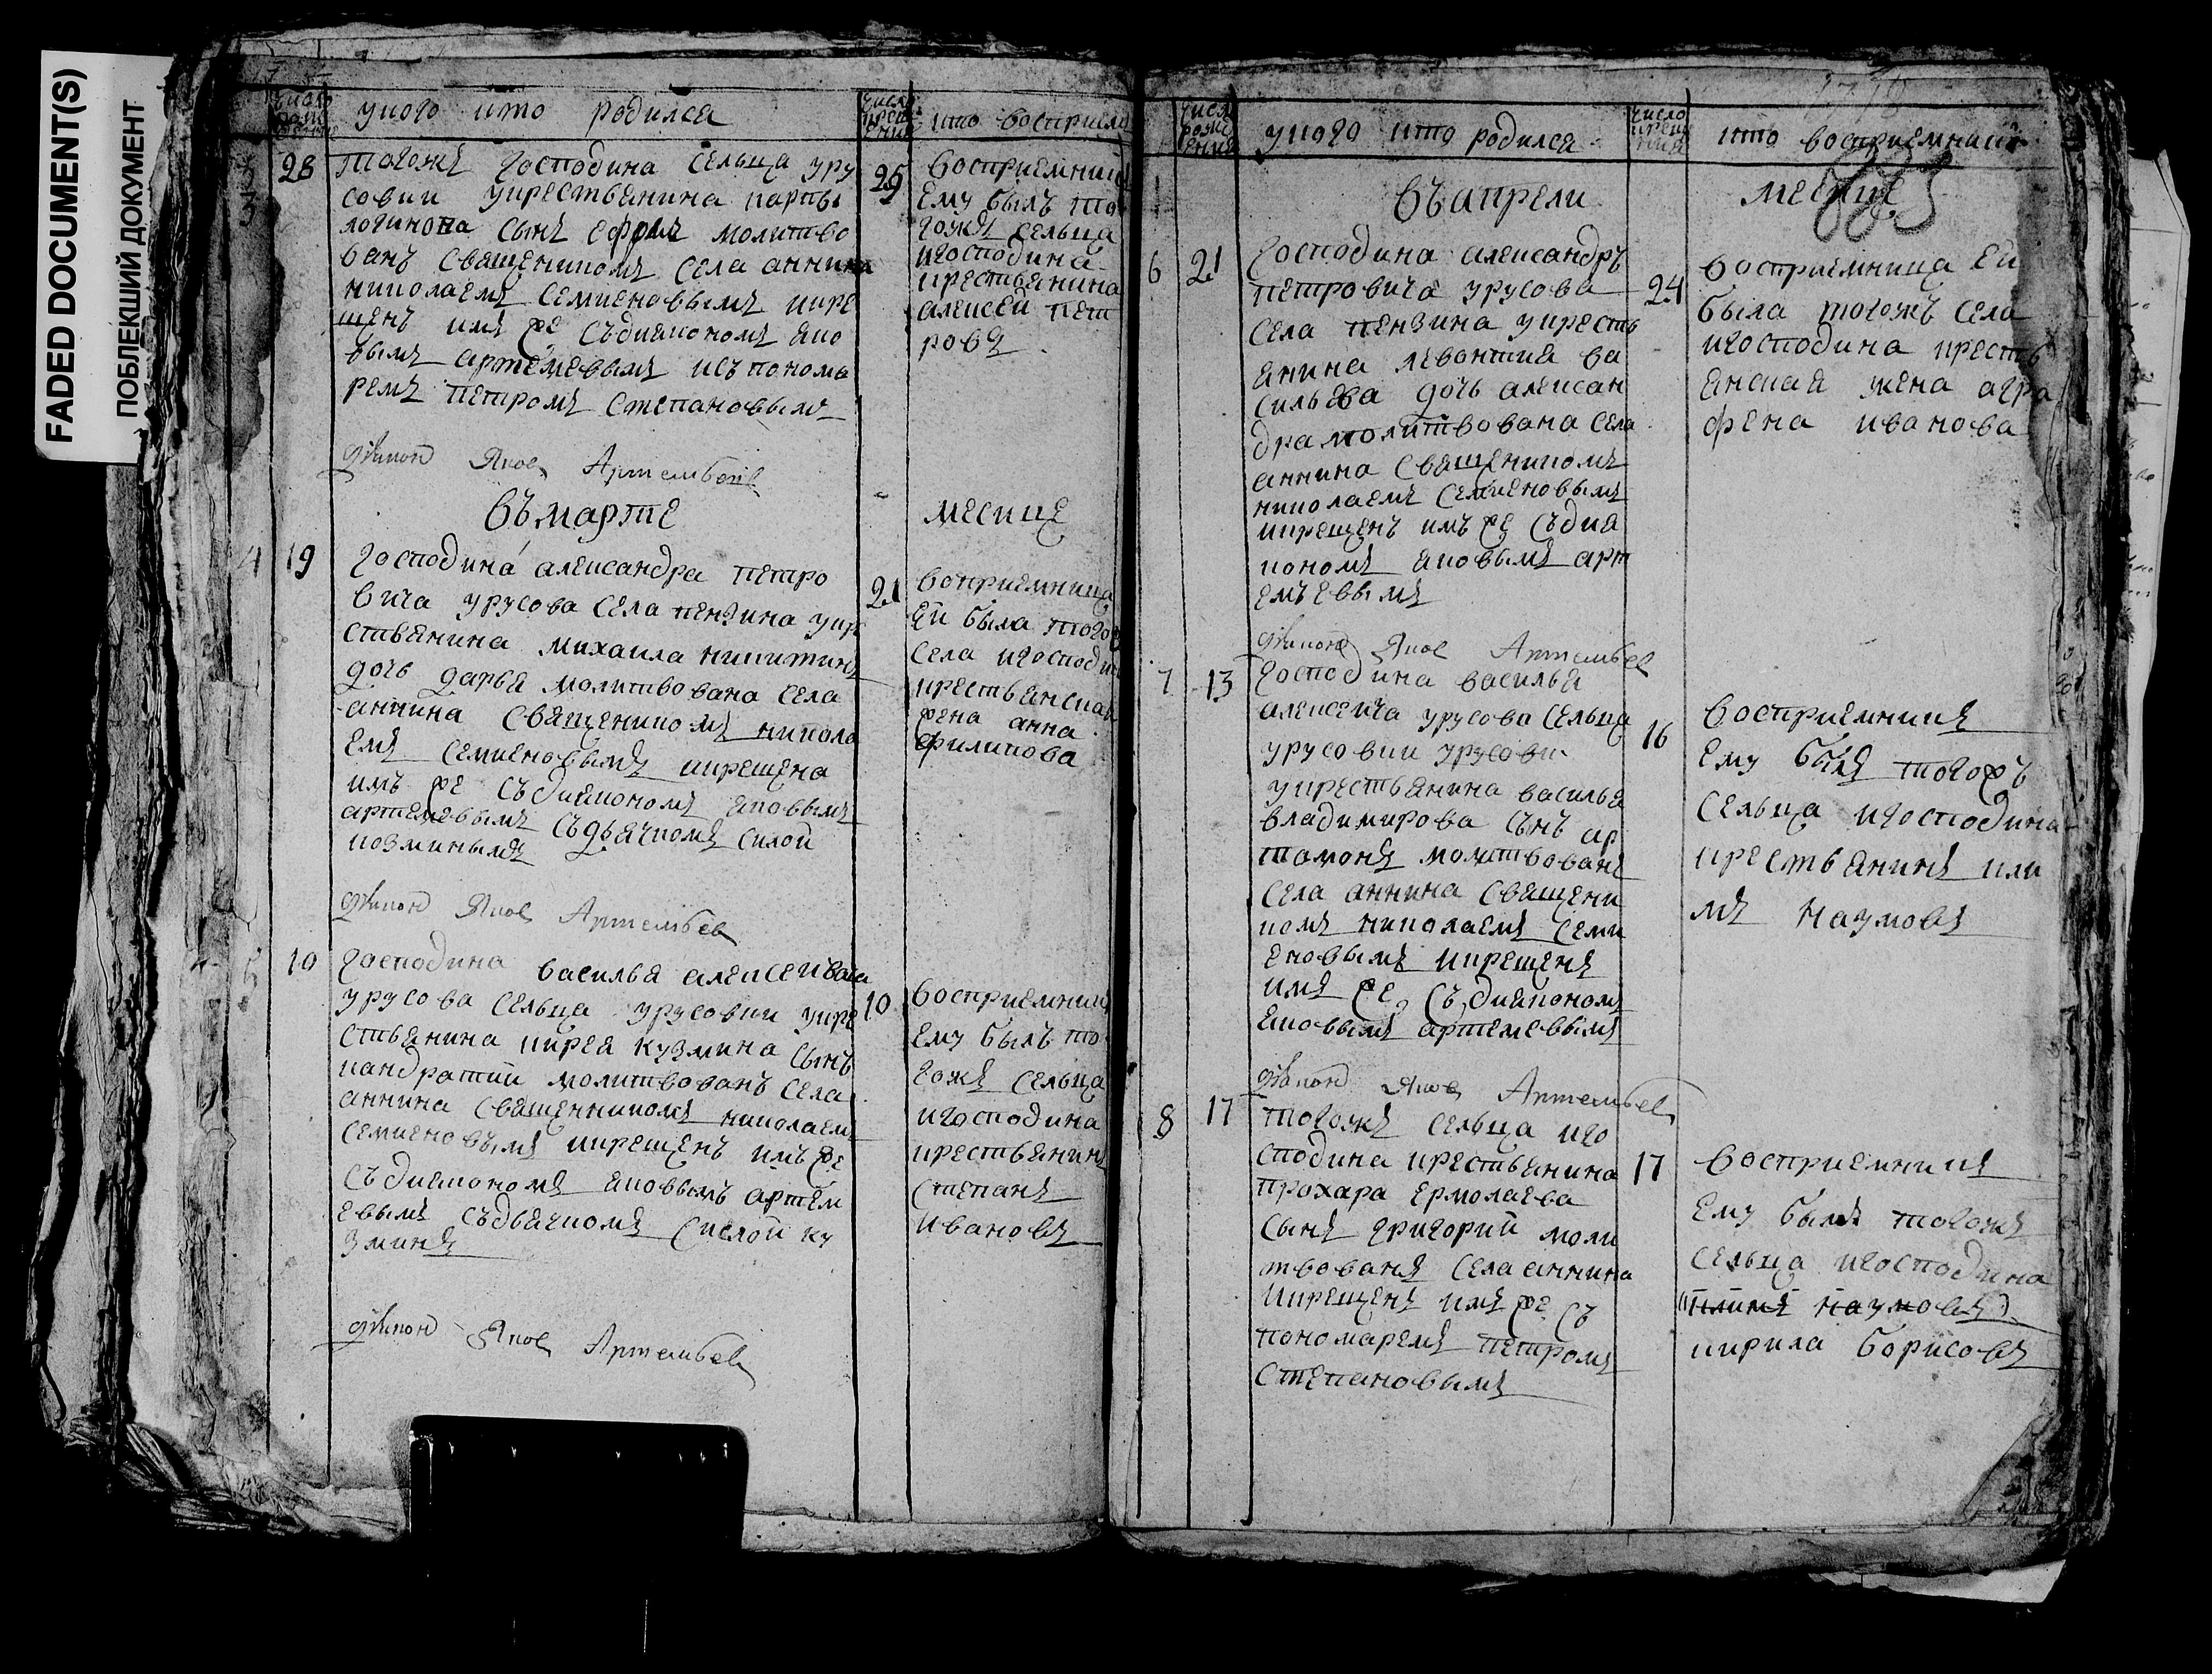 FADED DOCUMENT(S)
ПОБЛЕКШИЙ ДОКУМЕНТ
число рождения
у кого кто родился
число крещения
кто восприем
3
28
тогожъ господина селца уру
совки у крестьянина карпы
логинова сынъ ефремъ молитво
ванъ священикомъ села аннина
николаемъ семиеновымъ икре
щенъ имъ же съдиакономъ яко
вымъ артемевымъ исъ понома
ремъ петромъ степановымъ
25
восприемникъ
ему былъ то
гожъ селца
игосподина
крестьянина
алексей пет
ровъ
дїяконъ Яковъ Артемьевъ
въ марте
месице
4
19
господина александра петро
вича урусова села пензина укре
стьянина михаила никитина
дочь дарья молитвована села
аннина священикомъ никола
емъ семиеновымъ икрещена
имъ же съдиакономъ яковымъ
артемевымъ съдьячкомъ силой
козминымъ
21
воприемница
ей была тогож
села игосподи
крестьянская
жена анна
филипова
дїяконъ Яковъ Артемьевъ
5
10
господина василья алексеивича
урусова сельца урусовки укре
стьянина кирея кузмина сынъ
кандратий молитвованъ села
аннина священникомъ николаемъ
семиеновымъ икрещенъ имъ же
съдиакономъ яковымъ артем
евымъ съдьячкомъ силой ку
зминъ
10
восприемникъ
ему былъ то
гожъ сельца
игосподина
крестьянинъ
степанъ
ивановъ
дїяконъ Яковъ Артемьевъ
число рождения
у кого кто родился
число крещения
кто восприемникъ
883
въ апрели
месице
6
21
господина александръ
петровича урусова
села пензина укресть
янина левонтия ва
сильева дочь алексан
дра молитвована села
аннина священикомъ
николаемъ семиеновымъ
икрещенъ имъ же съдия
кономъ яковымъ арт
емъевымъ
24
восприемница ей
была тогожъ села
игосподина кресть
янская жена агра
фена иванова
дїяконъ Яковъ Артемьевъ
7
13
господина василья
алексеича урусова сельца
урусовки урусовк
укрестьянина василья
владимирова сынъ ар
тамонъ молитвованъ
села аннина священи
комъ николаемъ семи
еновымъ икрещенъ
имъ же съдияконом
яковымъ артемевымъ
16
восприемникъ
ему былъ тогожъ
сельца игосподина
крестьянинъ кли
мъ наумовъ
дїяконъ Яковъ Артемьевъ
8
17
тогожъ сельца иго
сподина крестьянина
прохара ермолаева
сынъ григорий моли
твованъ села аннина
икрещенъ имъ же съ
пономаремъ петромъ
степановымъ
17
восприемникъ
ему былъ тогожъ
сельца игосподина
(климъ наумовъ)
кирила борисовъ